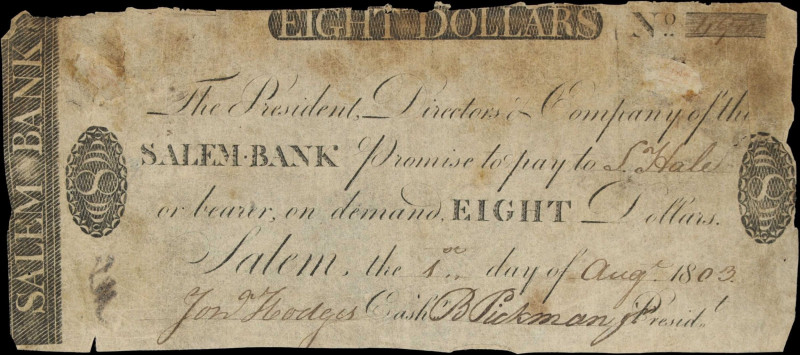 EIGHT DOLLARS No.
SALEM BANK
The President, Directors & Company of the
SALEM·BANK Promise to pay to S. Hale
8
8
or bearer, on demand, EIGHT Dollars.
Salem, the 1st day of Augt. 1803.
Jona. Hodges Cash B Pickman Jr Presidt.